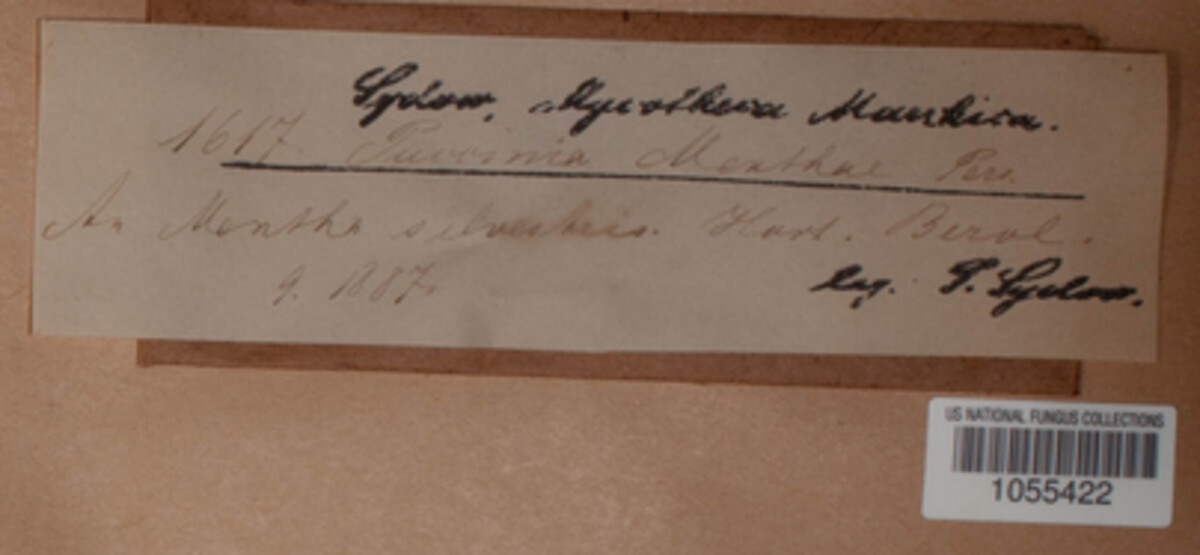 Sydow, Mycotheca Marchica.
1617. Puccinia Menthae Pers.
An Mentha silvestris. Hort. Berol.
9. 1887.
leg. P. Sydow.
US NATIONAL FUNGUS COLLECTIONS
1055422